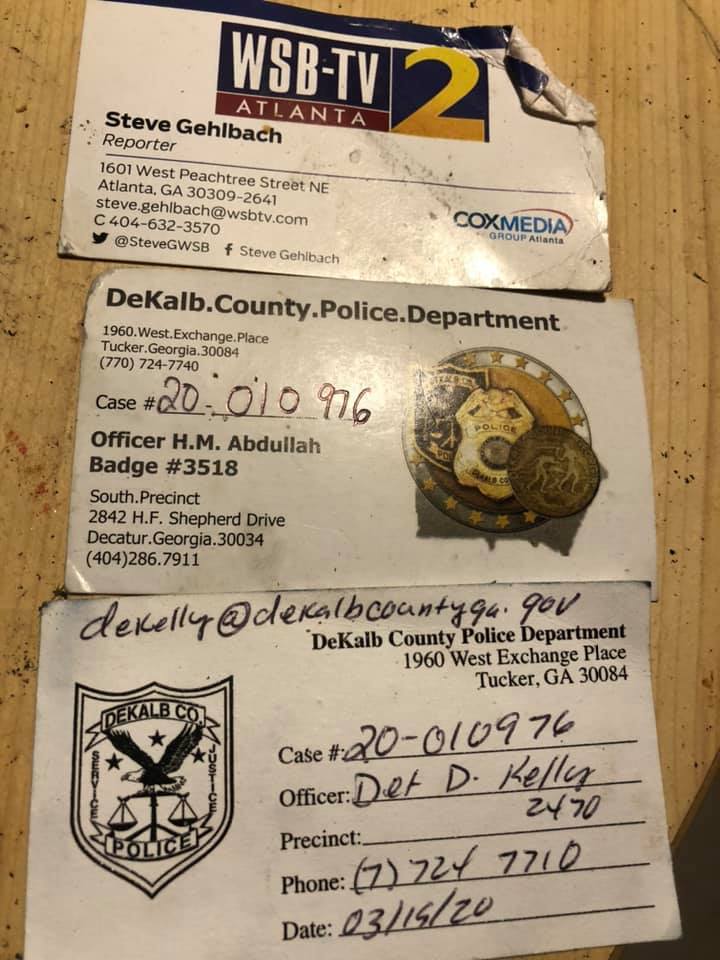 WSB-TV 2
ATLANTA
Steve Gehlbach
Reporter
1601 West Peachtree Street NE
Atlanta, GA 30309-2641
steve.gehlbach@wsbtv.com
C 404-632-3570
@SteveGWSB f Steve Gehlbach
COXMEDIA
GROUP Atlanta
DeKalb.County.Police.Department
1960.West.Exchange.Place
Tucker.Georgia.30084
(770) 724-7740
Case #20-010976
Officer H.M. Abdullah
Badge #3518
South.Precinct
2842 H.F. Shepherd Drive
Decatur.Georgia.30034
(404)286.7911
POLICE
dekelly@dekalbcountyga.gov
DeKalb County Police Department
1960 West Exchange Place
Tucker, GA 30084
DEKALB CO.
SERVICE
JUSTICE
POLICE
Case #:20-010976
Officer: Det D. Kelly
2470
Precinct:
Phone: (7) 724 7710
Date: 03/19/20